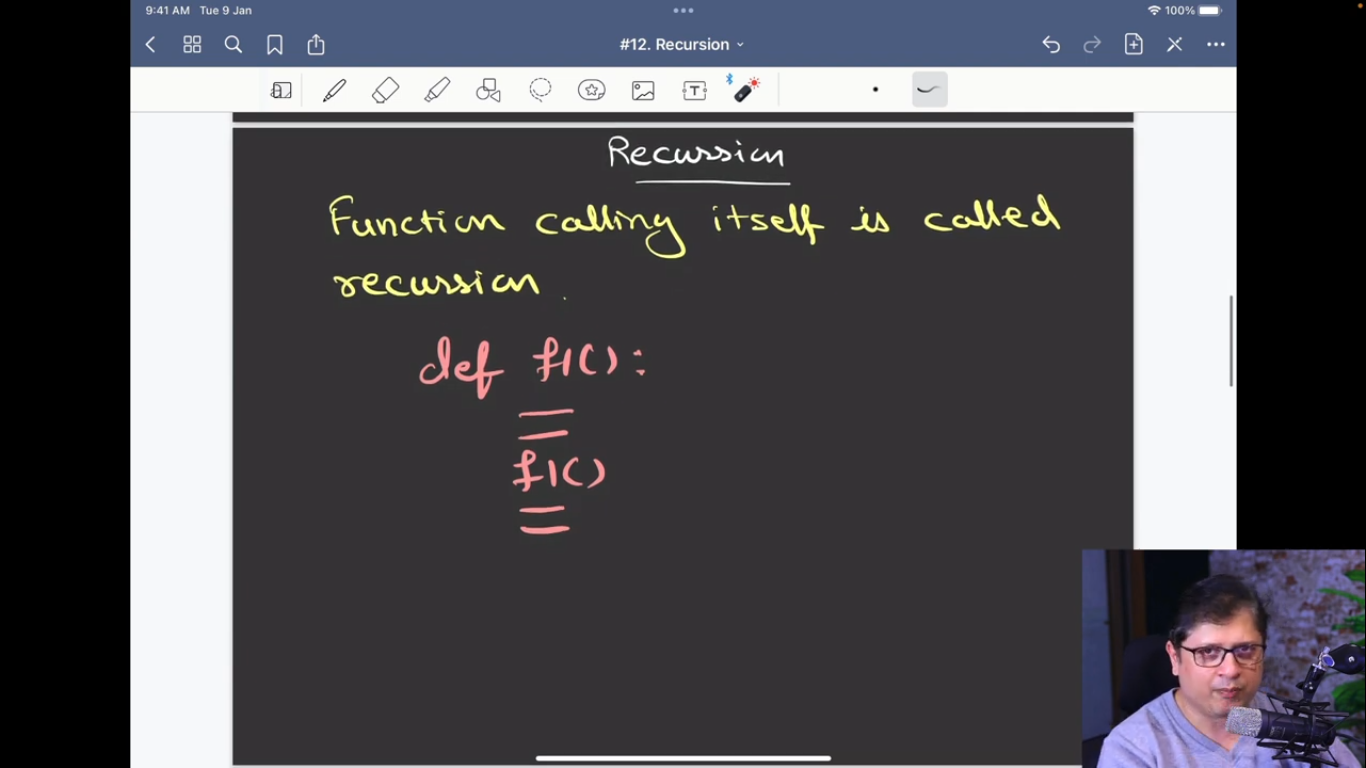 9:41 AM Tue 9 Jan
100%
#12. Recursion
T
Recursion
Function calling itself is called
recursion.
def f1():
f1()